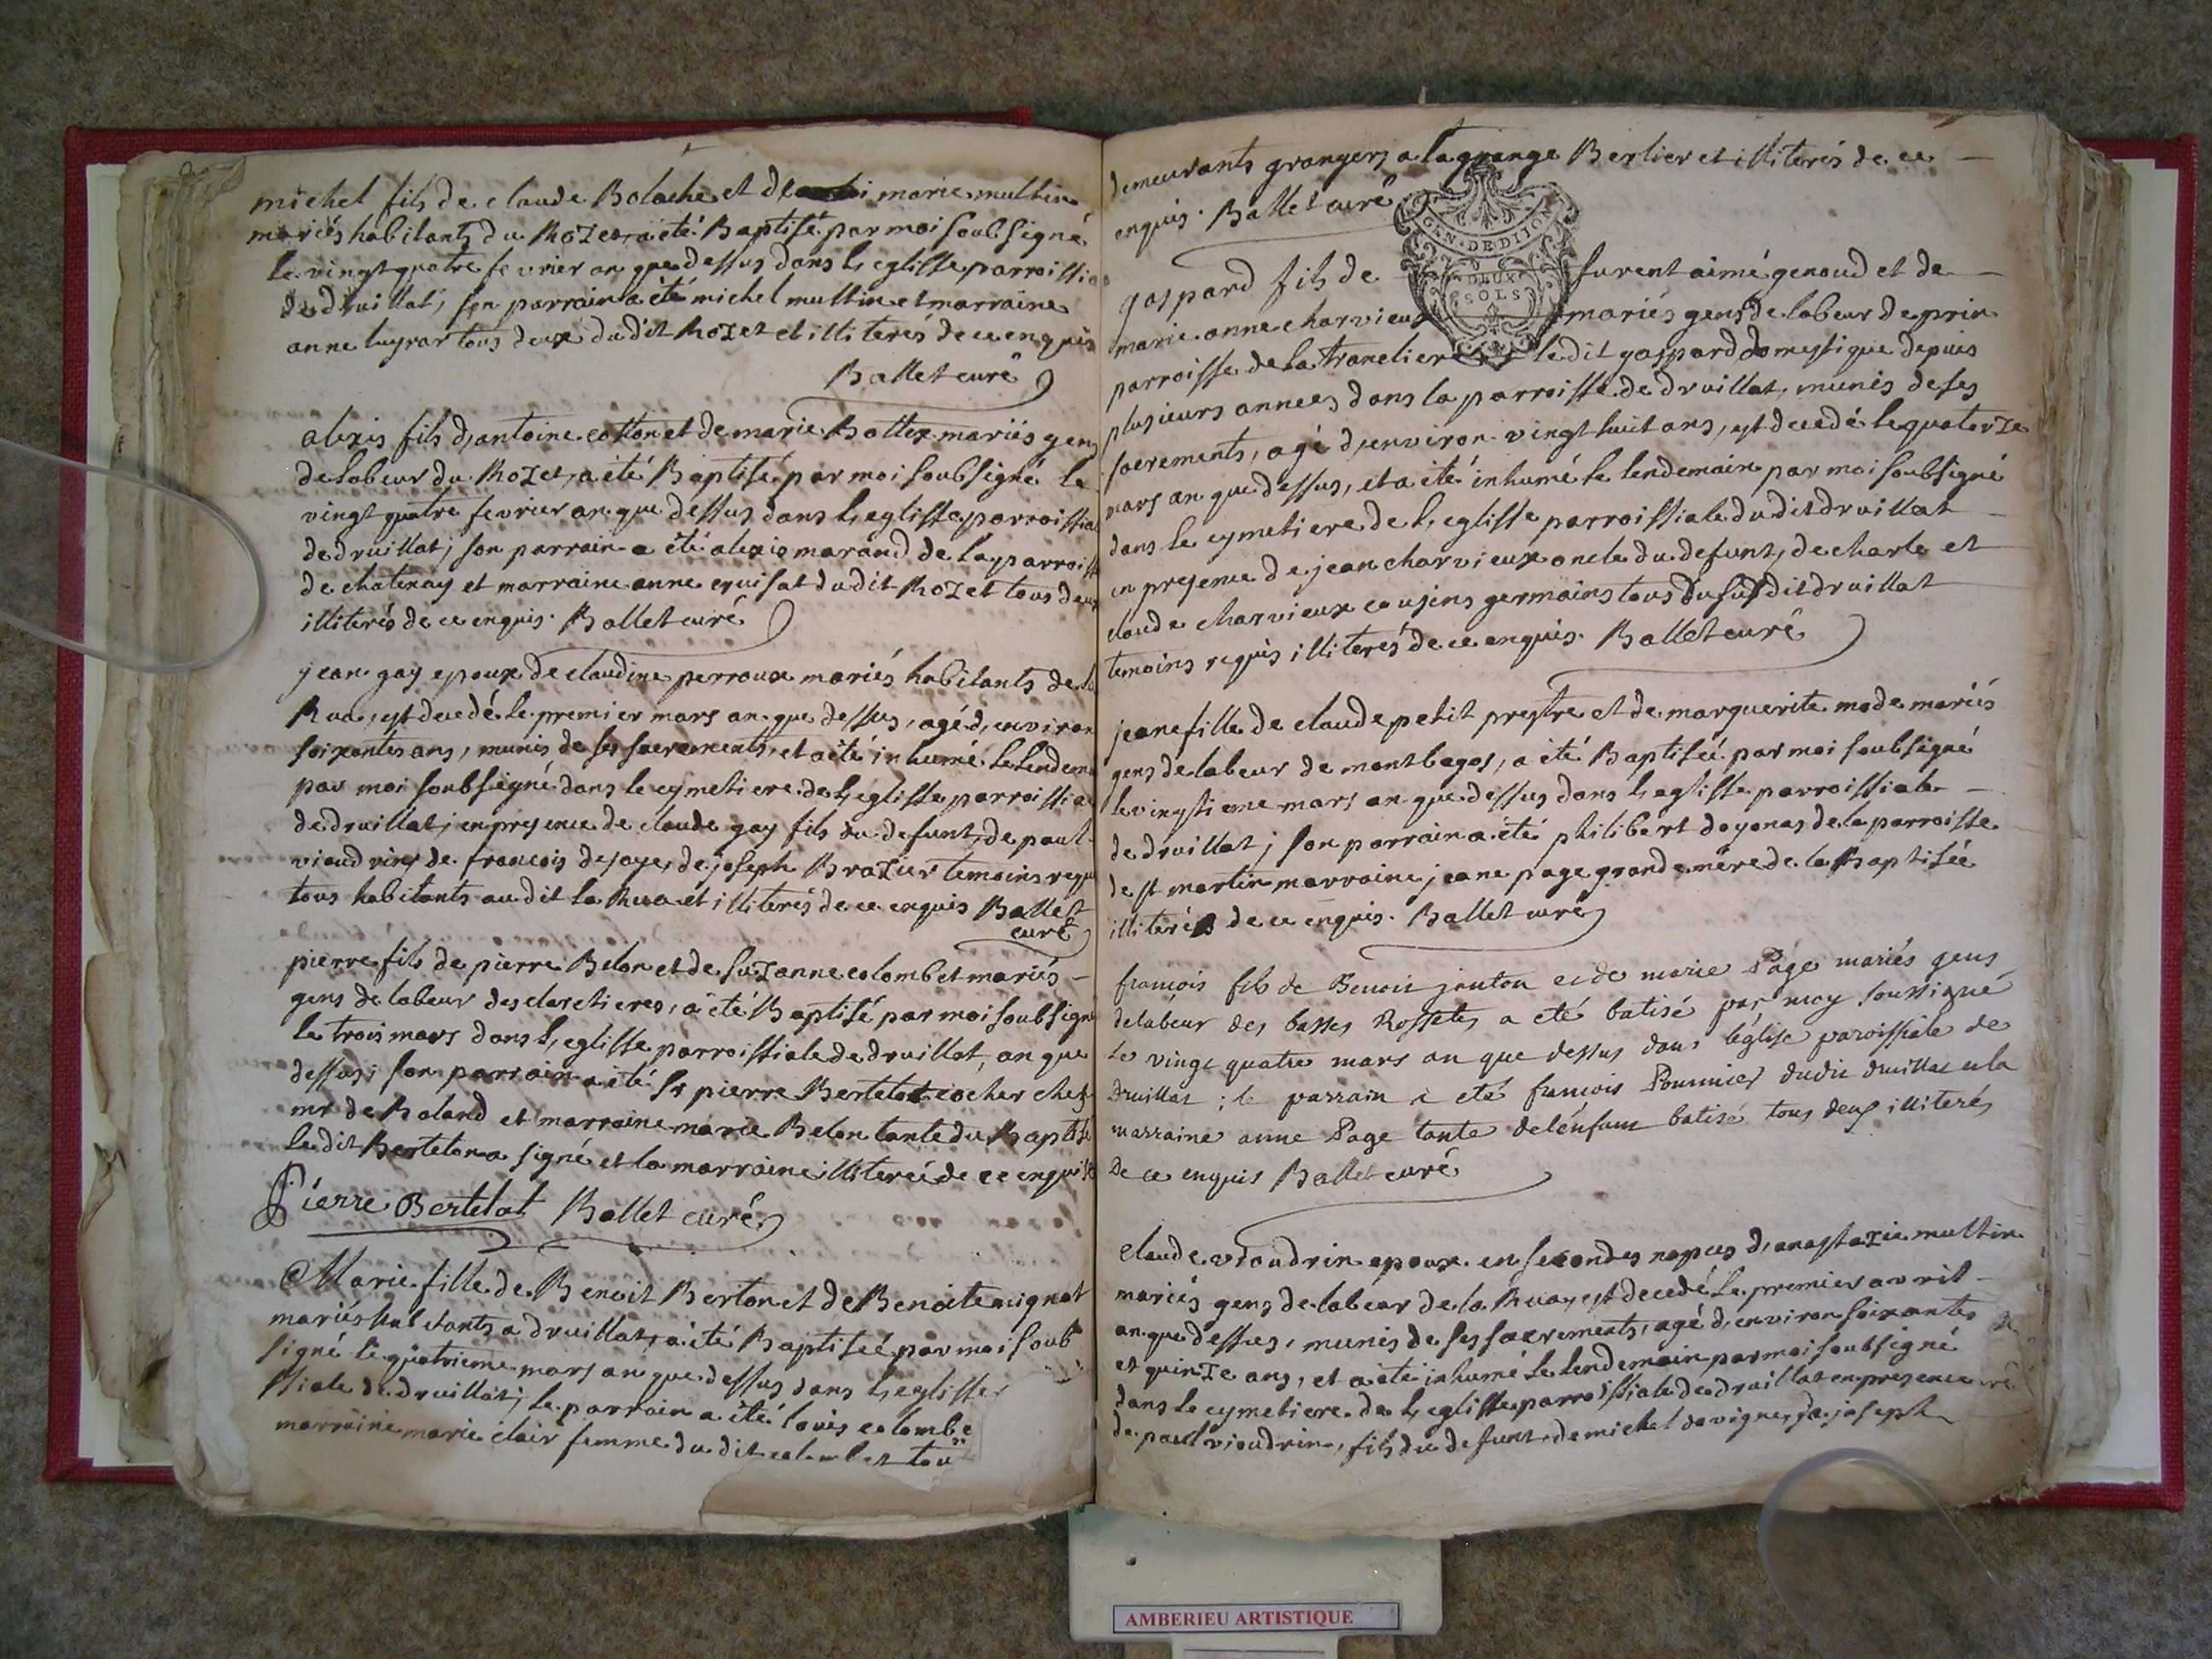 michel fils de claude Bolache et de marie multin
mariés habitants du Rozet, a été Baptisé par moi soubsigné
le vingt quatre fevrier an que dessus dans l,eglisse parroissia
de druillat, son parrain a été michel multin et marraine
anne tous deux du dit Rozet et illiterés de ce enquis
Ballet curé
alexis fils d,antoine cotton et de marie Bollex mariés gens
de labeur du Rozet, a été Baptisé par moi soubsigné le
vingt quatre fevrier an que dessus dans l,eglisse parroissia
de druillat; son parrain a été alexis marand de la parroisse
de chatenay et marraine anne cruisat du dit Rozet tous deux
illiterés de ce enquis. Ballet curé
jean gay epoux de claudine perroux mariés habitants de la
Rua, est decedé le premier mars an que dessus, agé d,environ
soixantes ans, munis de ses sacrements, et a été inhumé le lendem
par moi soubsigné dans le cymetiere de l,eglisse parroissia
de druillat; en presence de claude gay fils du defunt, de paul
vioudrin, de francois dejoye, de joseph Brazier temoins requ
tous habitants au dit la Rua et illiterés de ce enquis Ballet
curé
pierre fils de pierre Belon et de suzanne colombet mariés
gens de labeur des claretieres, a été Baptisé par moi soubsigné
le trois mars dans l,eglisse parroissiale de druillat, an que
dessus; son parrain a été sr pierre Bertelot cocher chez
mr de Roland et marraine marie Belon tante du Baptisé
le dit Berteton a signé et la marraine illitereé de ce enquis
Pierre Bertelat Ballet curé
Marie fille de Benoit Berton et de Benoite mignat
mariés habitants a druillat, a été Baptiseé par moi soub
signé le quatrieme mars an que dessus dans l,eglisse
ssiale de druillat; le parrain a été louis colombe
marraine marie clair femme du dit colombet tou
demeurants grangers a la grange Berlier et illiterés de ce
enquis. Ballet curé
GEN. DE DIJON
DEUX
SOLS
gaspard fils de furent aimé genoud et de
marie anne charvieux mariés gens de labeur de prin
parroisse de la tranclier ledit gaspard domestique depuis
plusieurs annees dans la parroisse de druillat, munis de ses
sacrements, agé d,environ vingt huit ans, est decedé le quatorze
mars an que dessus, et a été inhumé le lendemain par moi soubsigné
dans le cymetiere de l,eglisse parroissiale du dit druillat
en presence de jean charvieux oncle du defunt, de charle et
claude charvieux cousins germains tous du susdit druillat
temoins requis illiterés de ce enquis. Ballet curé
jeane fille de claude petit prestre et de marguerite mode mariés
gens de labeur de montbegos, a été Baptiseé par moi soubsigné
le vingtieme mars an que dessus dans l,eglisse parroissiale
de druillat; son parrain a été philibert doyonas de la parroisse
de st martin marraine jeane page grande mére de la Baptiseé
illiterés de ce enquis. Ballet curé
francois fils de Benoit janton et de marie Page mariés gens
de labeur des basses Rossetes a eté batisé par moy soussigné
Le vingt quatre mars an que dessus dans l'église paroissiale de
Druillat; le parrain a eté francois Pommier dudit druillat et la
marraine anne Page tante de l'enfant batisé tous deux illiterés
De ce enquis Ballet curé
claude vioudrin epoux en secondes nopces d,anastazie multin
mariés gens de labeur de la Rua, est decedé le premier avril
an que dessus, munis de ses sacrements, agé d,environ soixantes
et quinze ans, et a été inhumé le lendemain par moi soubsigné
dans le cymetiere de l,eglisse parroissiale de druillat en presence
de paul vioudrin, fils du defunt, de michel davigne, de joseph
AMBERIEU ARTISTIQUE